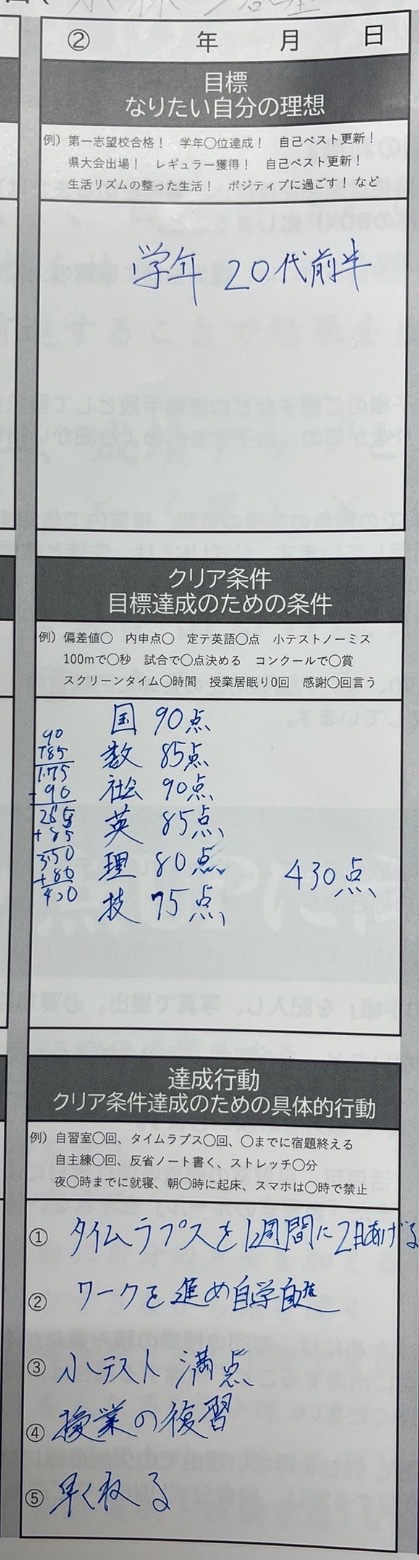 ② 年 月 日
目標
なりたい自分の理想
例）第一志望校合格！ 学年〇位達成！ 自己ベスト更新！
県大会出場！ レギュラー獲得！ 自己ベスト更新！
生活リズムの整った生活！ ポジティブに過ごす！など
学年 20代前半
クリア条件
目標達成のための条件
例）偏差値〇 内申点〇 定テ英語〇点 小テストノーミス
100mで〇秒 試合で〇点決める コンクールで〇賞
スクリーンタイム〇時間 授業居眠り0回 感謝〇回言う
国 90点
数 85点
社会 90点
英 85点
理 80点
430点
技 75点
90
+85
175
+90
265
+85
350
+80
430
達成行動
クリア条件達成のための具体的行動
例）自習室〇回、タイムラプス〇回、〇までに宿題終える
自主練〇回、反省ノート書く、ストレッチ〇分
夜〇時までに就寝、朝〇時に起床、スマホは〇時で禁止
① タイムラプスを1週間に2回あげる
② ワークを進め自学自進
③ 小テスト 満点
④ 授業の復習
⑤ 早くねる